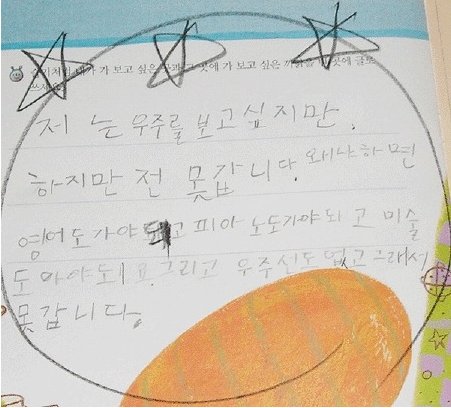 가 보고 싶은 곳에 가 보고 싶은 까닭을 곳에 글로
저 는 우주를 보고 싶지만,
하지만 전 못갑니다. 왜냐하면
영어도가야 되고 피아노도가야되 고 미술
도 와야되요.그리고 우주선도 없고그래서
못갑니다.